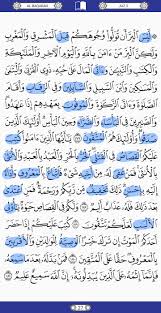 AL BAQARAH JUZ 2
۞ لَّيْسَ ٱلْبِرَّ أَن تُوَلُّوا۟ وُجُوهَكُمْ قِبَلَ ٱلْمَشْرِقِ وَٱلْمَغْرِبِ
وَلَٰكِنَّ ٱلْبِرَّ مَنْ ءَامَنَ بِٱللَّهِ وَٱلْيَوْمِ ٱلْءَاخِرِ وَٱلْمَلَٰٓئِكَةِ
وَٱلْكِتَٰبِ وَٱلنَّبِيِّـۧنَ وَءَاتَى ٱلْمَالَ عَلَىٰ حُبِّهِۦ ذَوِى ٱلْقُرْبَىٰ
وَٱلْيَتَٰمَىٰ وَٱلْمَسَٰكِينَ وَٱبْنَ ٱلسَّبِيلِ وَٱلسَّآئِلِينَ وَفِى ٱلرِّقَابِ
وَأَقَامَ ٱلصَّلَوٰةَ وَءَاتَى ٱلزَّكَوٰةَ وَٱلْمُوفُونَ بِعَهْدِهِمْ إِذَا عَٰهَدُوا۟
وَٱلصَّٰبِرِينَ فِى ٱلْبَأْسَآءِ وَٱلضَّرَّآءِ وَحِينَ ٱلْبَأْسِ أُو۟لَٰٓئِكَ ٱلَّذِينَ
صَدَقُوا۟ وَأُو۟لَٰٓئِكَ هُمُ ٱلْمُتَّقُونَ ١٧٧ يَٰٓأَيُّهَا ٱلَّذِينَ ءَامَنُوا۟ كُتِبَ
عَلَيْكُمُ ٱلْقِصَاصُ فِى ٱلْقَتْلَى ٱلْحُرُّ بِٱلْحُرِّ وَٱلْعَبْدُ بِٱلْعَبْدِ وَٱلْأُنثَىٰ
بِٱلْأُنثَىٰ فَمَنْ عُفِىَ لَهُۥ مِنْ أَخِيهِ شَىْءٌ فَٱتِّبَاعٌۢ بِٱلْمَعْرُوفِ وَأَدَآءٌ
إِلَيْهِ بِإِحْسَٰنٍ ذَٰلِكَ تَخْفِيفٌ مِّن رَّبِّكُمْ وَرَحْمَةٌ فَمَنِ ٱعْتَدَىٰ
بَعْدَ ذَٰلِكَ فَلَهُۥ عَذَابٌ أَلِيمٌ ١٧٨ وَلَكُمْ فِى ٱلْقِصَاصِ حَيَوٰةٌ يَٰٓأُو۟لِى
ٱلْأَلْبَٰبِ لَعَلَّكُمْ تَتَّقُونَ ١٧٩ كُتِبَ عَلَيْكُمْ إِذَا حَضَرَ
أَحَدَكُمُ ٱلْمَوْتُ إِن تَرَكَ خَيْرًا ٱلْوَصِيَّةُ لِلْوَٰلِدَيْنِ وَٱلْأَقْرَبِينَ
بِٱلْمَعْرُوفِ حَقًّا عَلَى ٱلْمُتَّقِينَ ١٨٠ فَمَنۢ بَدَّلَهُۥ بَعْدَمَا سَمِعَهُۥ
فَإِنَّمَآ إِثْمُهُۥ عَلَى ٱلَّذِينَ يُبَدِّلُونَهُۥٓ إِنَّ ٱللَّهَ سَمِيعٌ عَلِيمٌ ١٨١
27